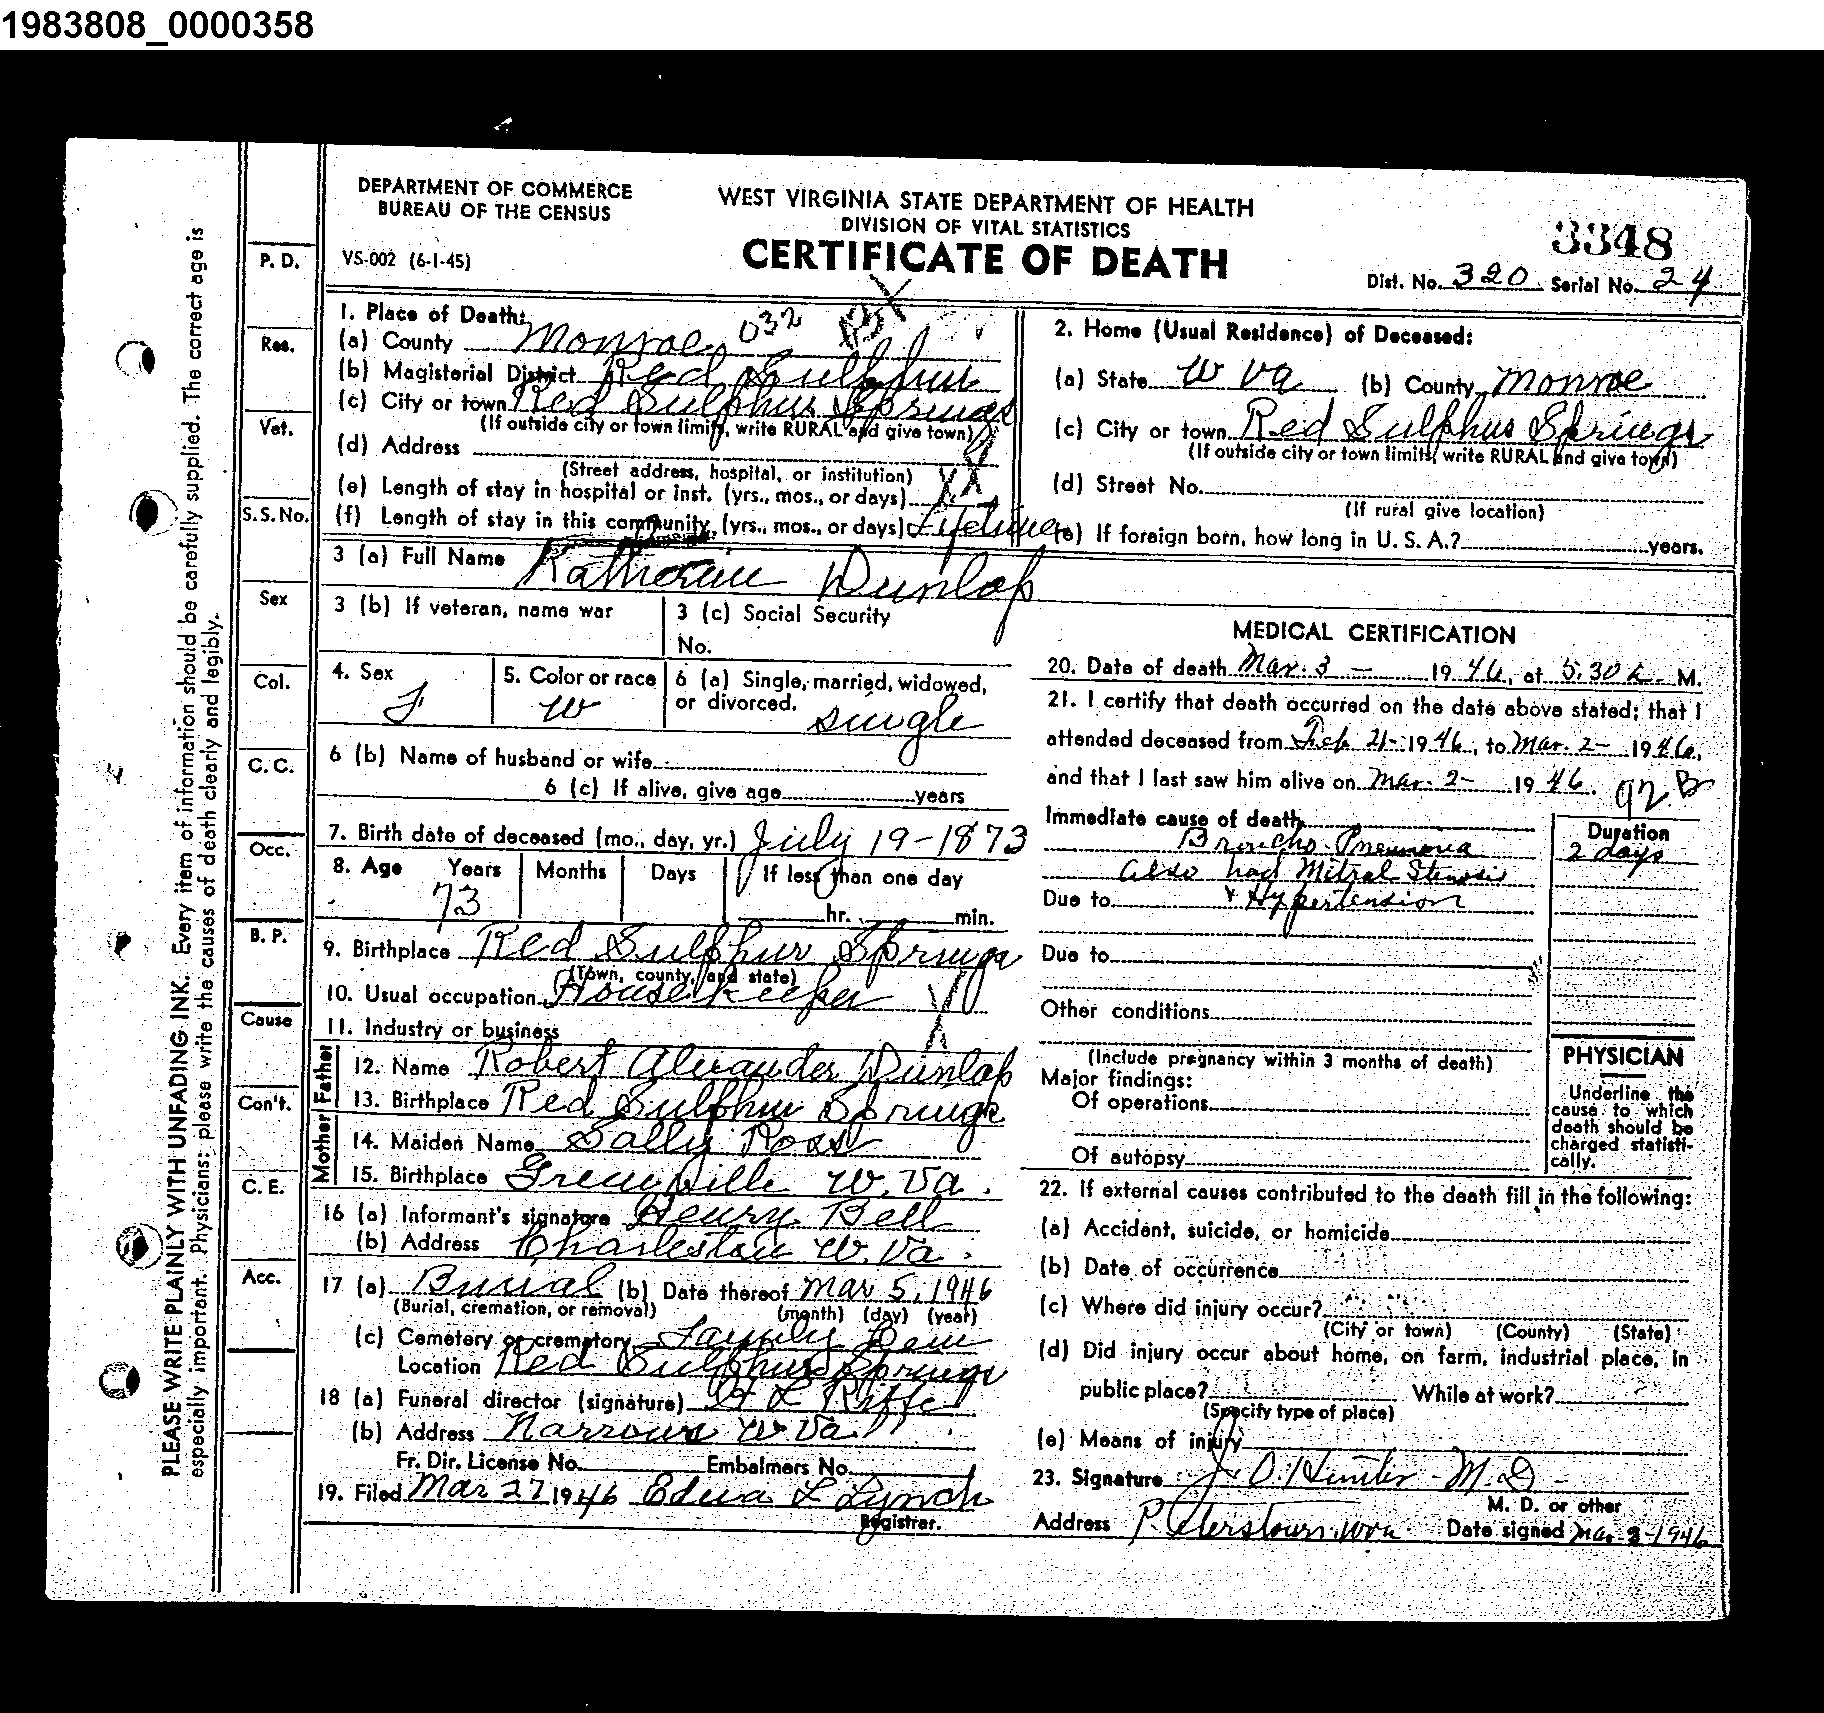 1983808_0000358
DEPARTMENT OF COMMERCE
BUREAU OF THE CENSUS
VS-002 (6-1-45)
WEST VIRGINIA STATE DEPARTMENT OF HEALTH
DIVISION OF VITAL STATISTICS
CERTIFICATE OF DEATH
3348
Dist. No. 320 Serial No. 24
1. Place of Death:
(a) County Monroe 032
(b) Magisterial District Red Sulphur
(c) City or town Red Sulphur Springs
(If outside city or town limits, write RURAL and give town)
(d) Address
(Street address, hospital, or institution)
(e) Length of stay in hospital or inst. (yrs., mos., or days)
(f) Length of stay in this community (yrs., mos., or days) Lifetime
2. Home (Usual Residence) of Deceased:
(a) State W Va (b) County Monroe
(c) City or town Red Sulphur Springs
(If outside city or town limits, write RURAL and give town)
(d) Street No.
(If rural give location)
(e) If foreign born, how long in U. S. A.? years.
3 (a) Full Name Katherine Dunlap
3 (b) If veteran, name war
3 (c) Social Security
No.
4. Sex F
5. Color or race W
6 (a) Single, married, widowed,
or divorced. single
6 (b) Name of husband or wife
6 (c) If alive, give age years
7. Birth date of deceased (mo., day, yr.) July 19-1873
8. Age Years Months Days If less than one day
73 hr. min.
9. Birthplace Red Sulphur Springs
(Town, county, and state)
10. Usual occupation Housekeeper
11. Industry or business
Father
12. Name Robert Alexander Dunlap
13. Birthplace Red Sulphur Springs
Mother
14. Maiden Name Sally Ross
15. Birthplace Greenville W. Va.
16 (a) Informant's signature Henry Bell
(b) Address Charleston W. Va.
17 (a) Burial (b) Date thereof Mar 5, 1946
(Burial, cremation, or removal) (month) (day) (year)
(c) Cemetery or crematory Family Cem
Location Red Sulphur Springs
18 (a) Funeral director (signature) H L Riffe
(b) Address Narrows W. Va.
Fr. Dir. License No. Embalmers No.
19. Filed Mar 27 1946 Edna L Lynch
Registrar.
MEDICAL CERTIFICATION
20. Date of death Mar. 3 - 1946, at 5:30 A. M.
21. I certify that death occurred on the date above stated; that I
attended deceased from Feb 21- 1946, to Mar. 2- 1946,
and that I last saw him alive on Mar. 2- 1946. 92 B
Immediate cause of death
Duration
Broncho-Pneumonia 2 days
also had Mitral Stenosis
Due to + Hypertension
Due to
Other conditions
(Include pregnancy within 3 months of death)
Major findings:
Of operations
Of autopsy
PHYSICIAN
Underline the
cause to which
death should be
charged statisti-
cally.
22. If external causes contributed to the death fill in the following:
(a) Accident, suicide, or homicide
(b) Date of occurrence
(c) Where did injury occur?
(City or town) (County) (State)
(d) Did injury occur about home, on farm, industrial place, in
public place? While at work?
(Specify type of place)
(e) Means of injury
23. Signature J. O. Hunter - M. D -
M. D. or other
Address Peterstown W Va. Date signed Mar. 3-1946
P. D.
Res.
Vet.
S. S. No.
Sex
Col.
C. C.
Occ.
B. P.
Cause
Con't.
C. E.
Acc.
PLEASE WRITE PLAINLY WITH UNFADING INK. Every item of information should be carefully supplied. The correct age is
especially important. Physicians: please write the causes of death clearly and legibly.